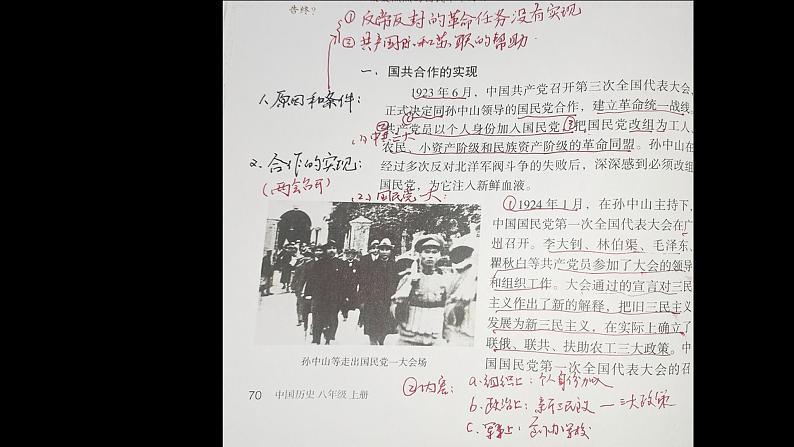 告终？
① 反帝反封的革命任务没有实现
② 共产国际和苏联的帮助
一、国共合作的实现
1.原因和条件：
1923 年 6 月，中国共产党召开第三次全国代表大会，
正式决定同孙中山领导的国民党合作，建立革命统一战线。
共产党员以个人身份加入国民党，把国民党改组为工人、
(1) 中共三大
农民、小资产阶级和民族资产阶级的革命同盟。孙中山在
2.合作的实现：
经过多次反对北洋军阀斗争的失败后，深深感到必须改组
(两会召开)
国民党，为它注入新鲜血液。
(2) 国民党一大：
① 1924 年 1 月，在孙中山主持下，
中国国民党第一次全国代表大会在广
州召开。李大钊、林伯渠、毛泽东、
瞿秋白等共产党员参加了大会的领导
和组织工作。大会通过的宣言对三民
主义作出了新的解释，把旧三民主义
发展为新三民主义，在实际上确立了
联俄、联共、扶助农工三大政策。中
国国民党第一次全国代表大会的召
孙中山等走出国民党一大会场
70 中国历史 八年级 上册
②内容：
a.组织上：个人身份加入
b.政治上：新三民主义 — 三大政策
c.军事上：创办学校